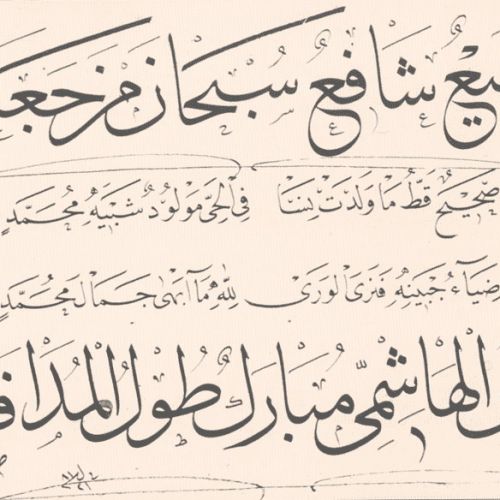 يعٌ شافعٌ سبحان من جعـ
صحيحٌ قطُّ ما ولدتْ نسا في الحيِّ مولودٌ شبيه محمّدٍ
ضياءُ جبينه فترى الورى لله ما أبهى جمال محمّدٍ
الهاشميّ مبارك طول المدا